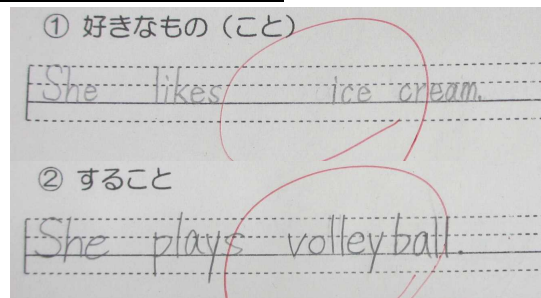 ① 好きなもの（こと）
She likes ice cream.
② すること
She plays volleyball.